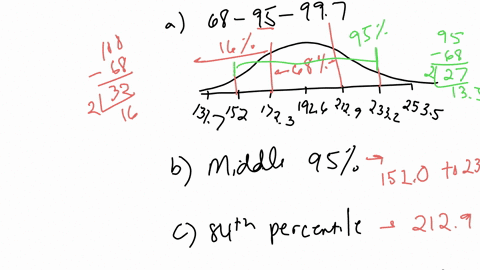 a) 68-95-99.7
100
- 68
2 32
16
16%
68%
95%
95
-68
2 27
13.5
152 192.6 212.9 233.2 253.5
b) Middle 95% → 152.0 to 23
c) 84th percentile → 212.9